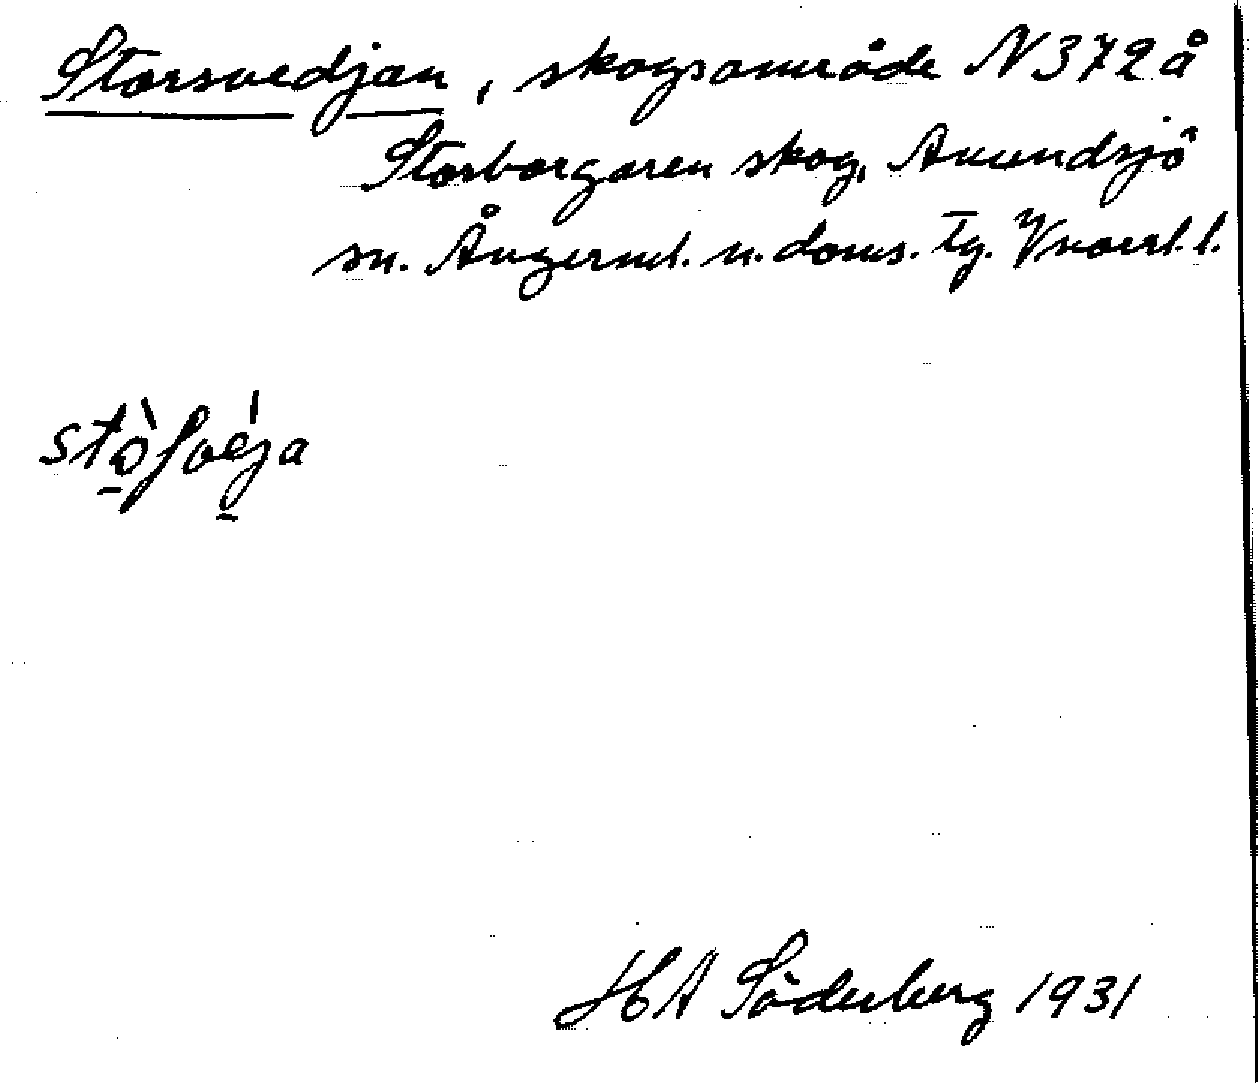 Storsvedjan, skogsområde N 372 å
Storborgaren skog, Anundsjö
sn. Ångerml. n. doms. Tg. Vnorrl. l.
HA Söderberg 1931